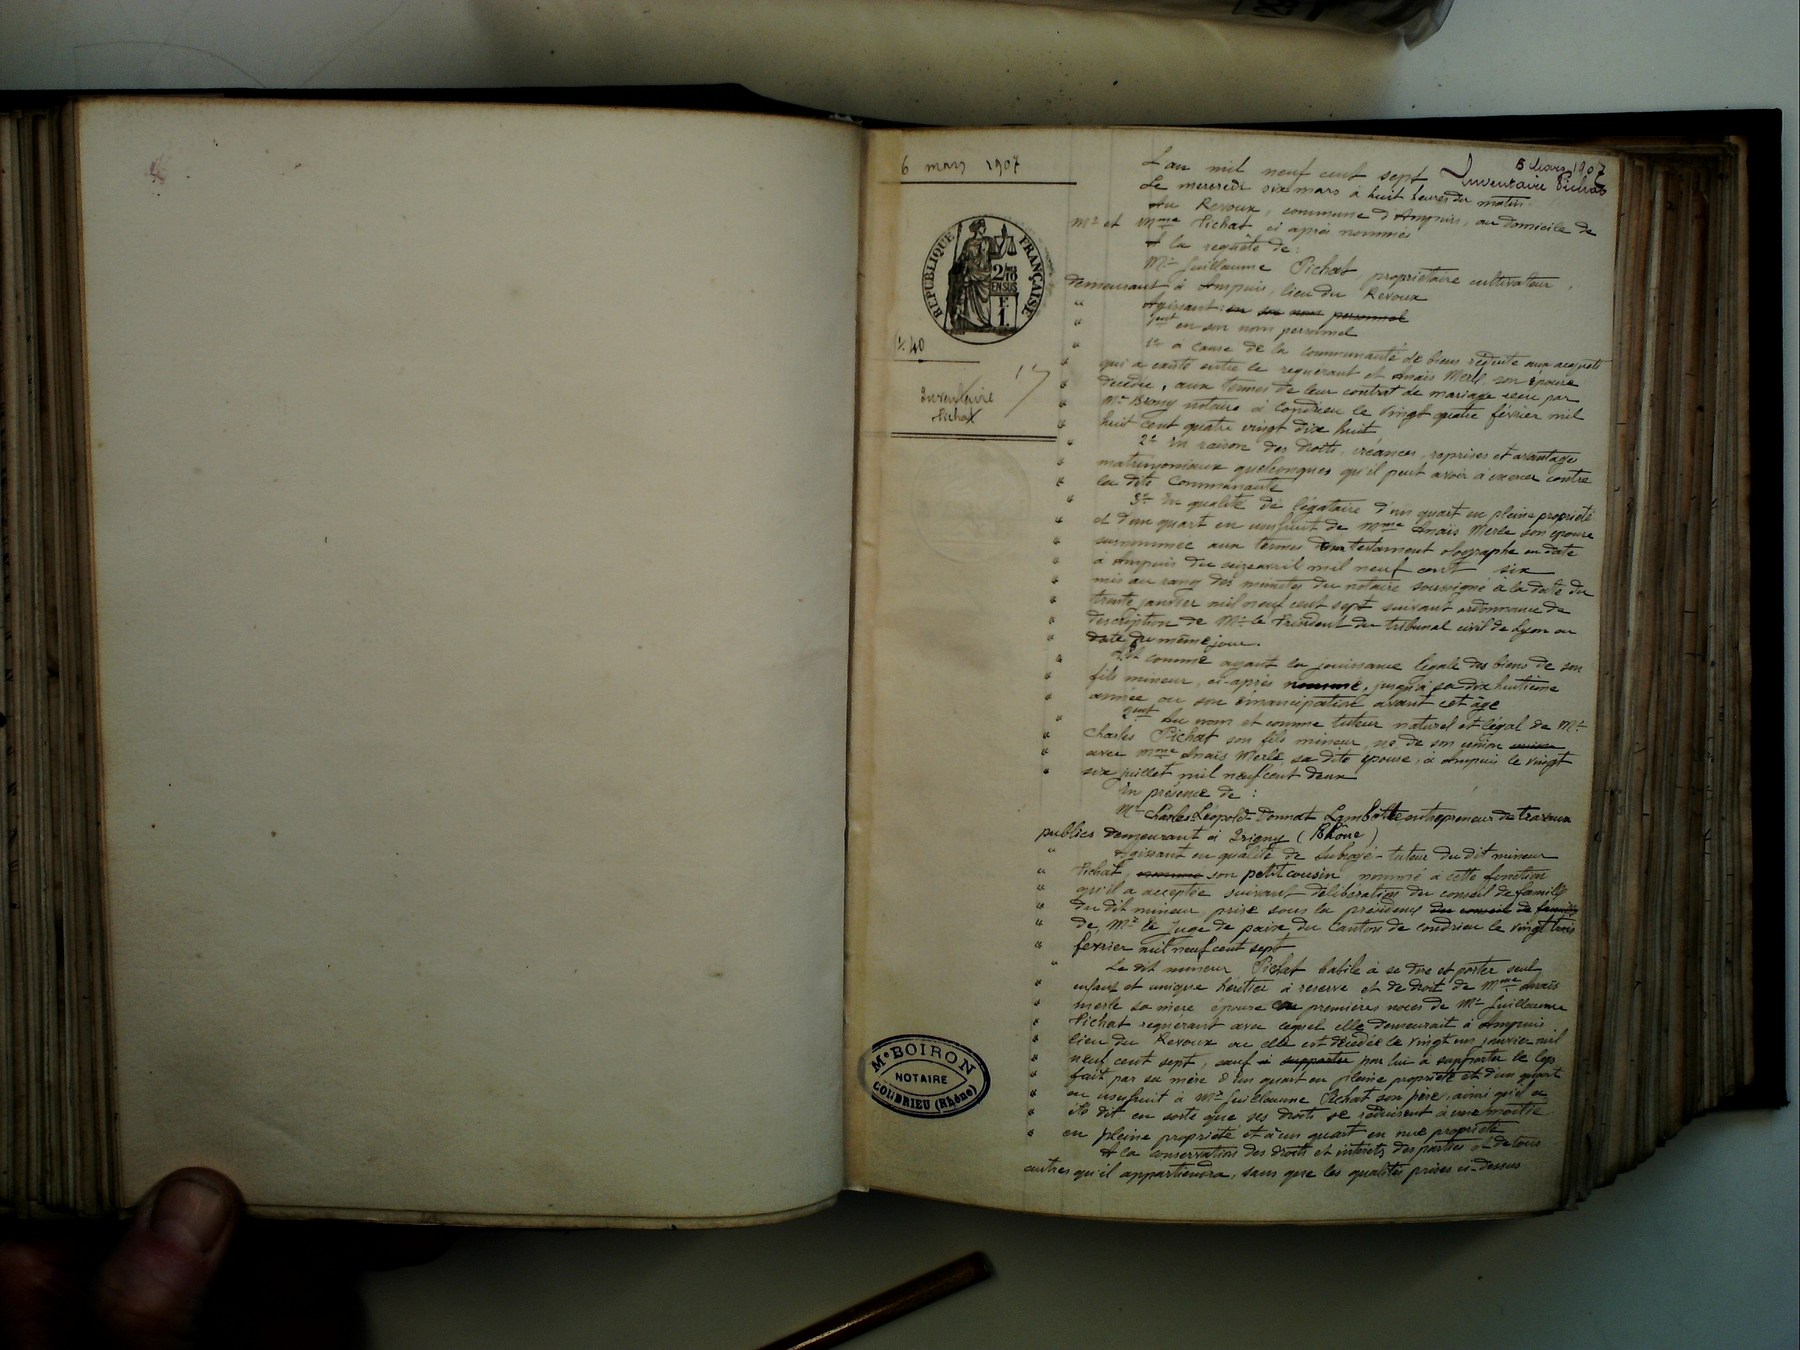 6 mars 1907
RÉPUBLIQUE FRANÇAISE
2/10
EN SUS
F.
1.
40
Inventaire
Pichat
17
Mᵉ BOIRON
NOTAIRE
CONDRIEU (Rhône)
Mars 1907
Inventaire Pichat
L'an mil neuf cent sept
Le mercredi six mars à huit heures du matin
Au Revoux, commune d'Ampuis, au domicile de
Mr et Mme Pichat ci après nommés
A la requête de :
Mr Guillaume Pichat propriétaire cultivateur,
demeurant à Ampuis, lieu du Revoux
Agissant en son nom personnel
1ent en son nom personnel
1º à cause de la communauté de biens réduite aux acquêts
qui a existé entre le requérant et Anaïs Merle son épouse
décédée, aux termes de leur contrat de mariage reçu par
Me Brony notaire à Condrieu le vingt quatre février mil
huit cent quatre vingt dix huit
2º En raison des droits, créances, reprises et avantages
matrimoniaux quelconques qu'il peut avoir à exercer contre
la dite Communauté
3º En qualité de légataire d'un quart en pleine propriété
et d'un quart en usufruit de Mme Anaïs Merle son épouse
susnommée aux termes d'un testament olographe en date
à Ampuis du seize avril mil neuf cent six
mis au rang des minutes du notaire soussigné à la date du
trente janvier mil neuf cent sept suivant ordonnance de
description de Mr le Président du tribunal civil de Lyon en
date du même jour.
Et comme ayant la jouissance légale des biens de son
fils mineur, ci-après nommé, jusqu'à sa dix huitième
année ou son émancipation avant cet âge
2ent Au nom et comme tuteur naturel et légal de Mr
Charles Pichat son fils mineur, né de son union
avec Mme Anaïs Merle, sa dite épouse, à Ampuis le vingt
six juillet mil neuf cent deux
En présence de :
Mr Charles Léopold Donnat Lambotte entrepreneur de travaux
publics demeurant à Irigny (Rhône)
Agissant en qualité de subrogé-tuteur du dit mineur
Pichat, son petit cousin nommé à cette fonction
qu'il a acceptée suivant délibération du conseil de famille
du dit mineur prise sous la présidence du conseil de famille
de Mr le Juge de paix du Canton de Condrieu le vingt trois
février mil neuf cent sept
Le dit mineur Pichat habile à se dire et porter seul
enfant et unique héritier à réserve et de droit de Mme Anaïs
Merle sa mère épouse en premières noces de Mr Guillaume
Pichat requérant avec lequel elle demeurait à Ampuis
lieu du Revoux où elle est décédée le vingt un janvier mil
neuf cent sept, sauf à supporter par lui à supporter le legs
fait par sa mère d'un quart en pleine propriété et d'un quart
en usufruit à Mr Guillaume Pichat son père, ainsi qu'il a
été dit en sorte que ses droits se réduisent à une moitié
en pleine propriété et à un quart en nue propriété
A la conservation des droits et intérêts des parties et de tous
autres qu'il appartiendra, sans que les qualités prises ci-dessus